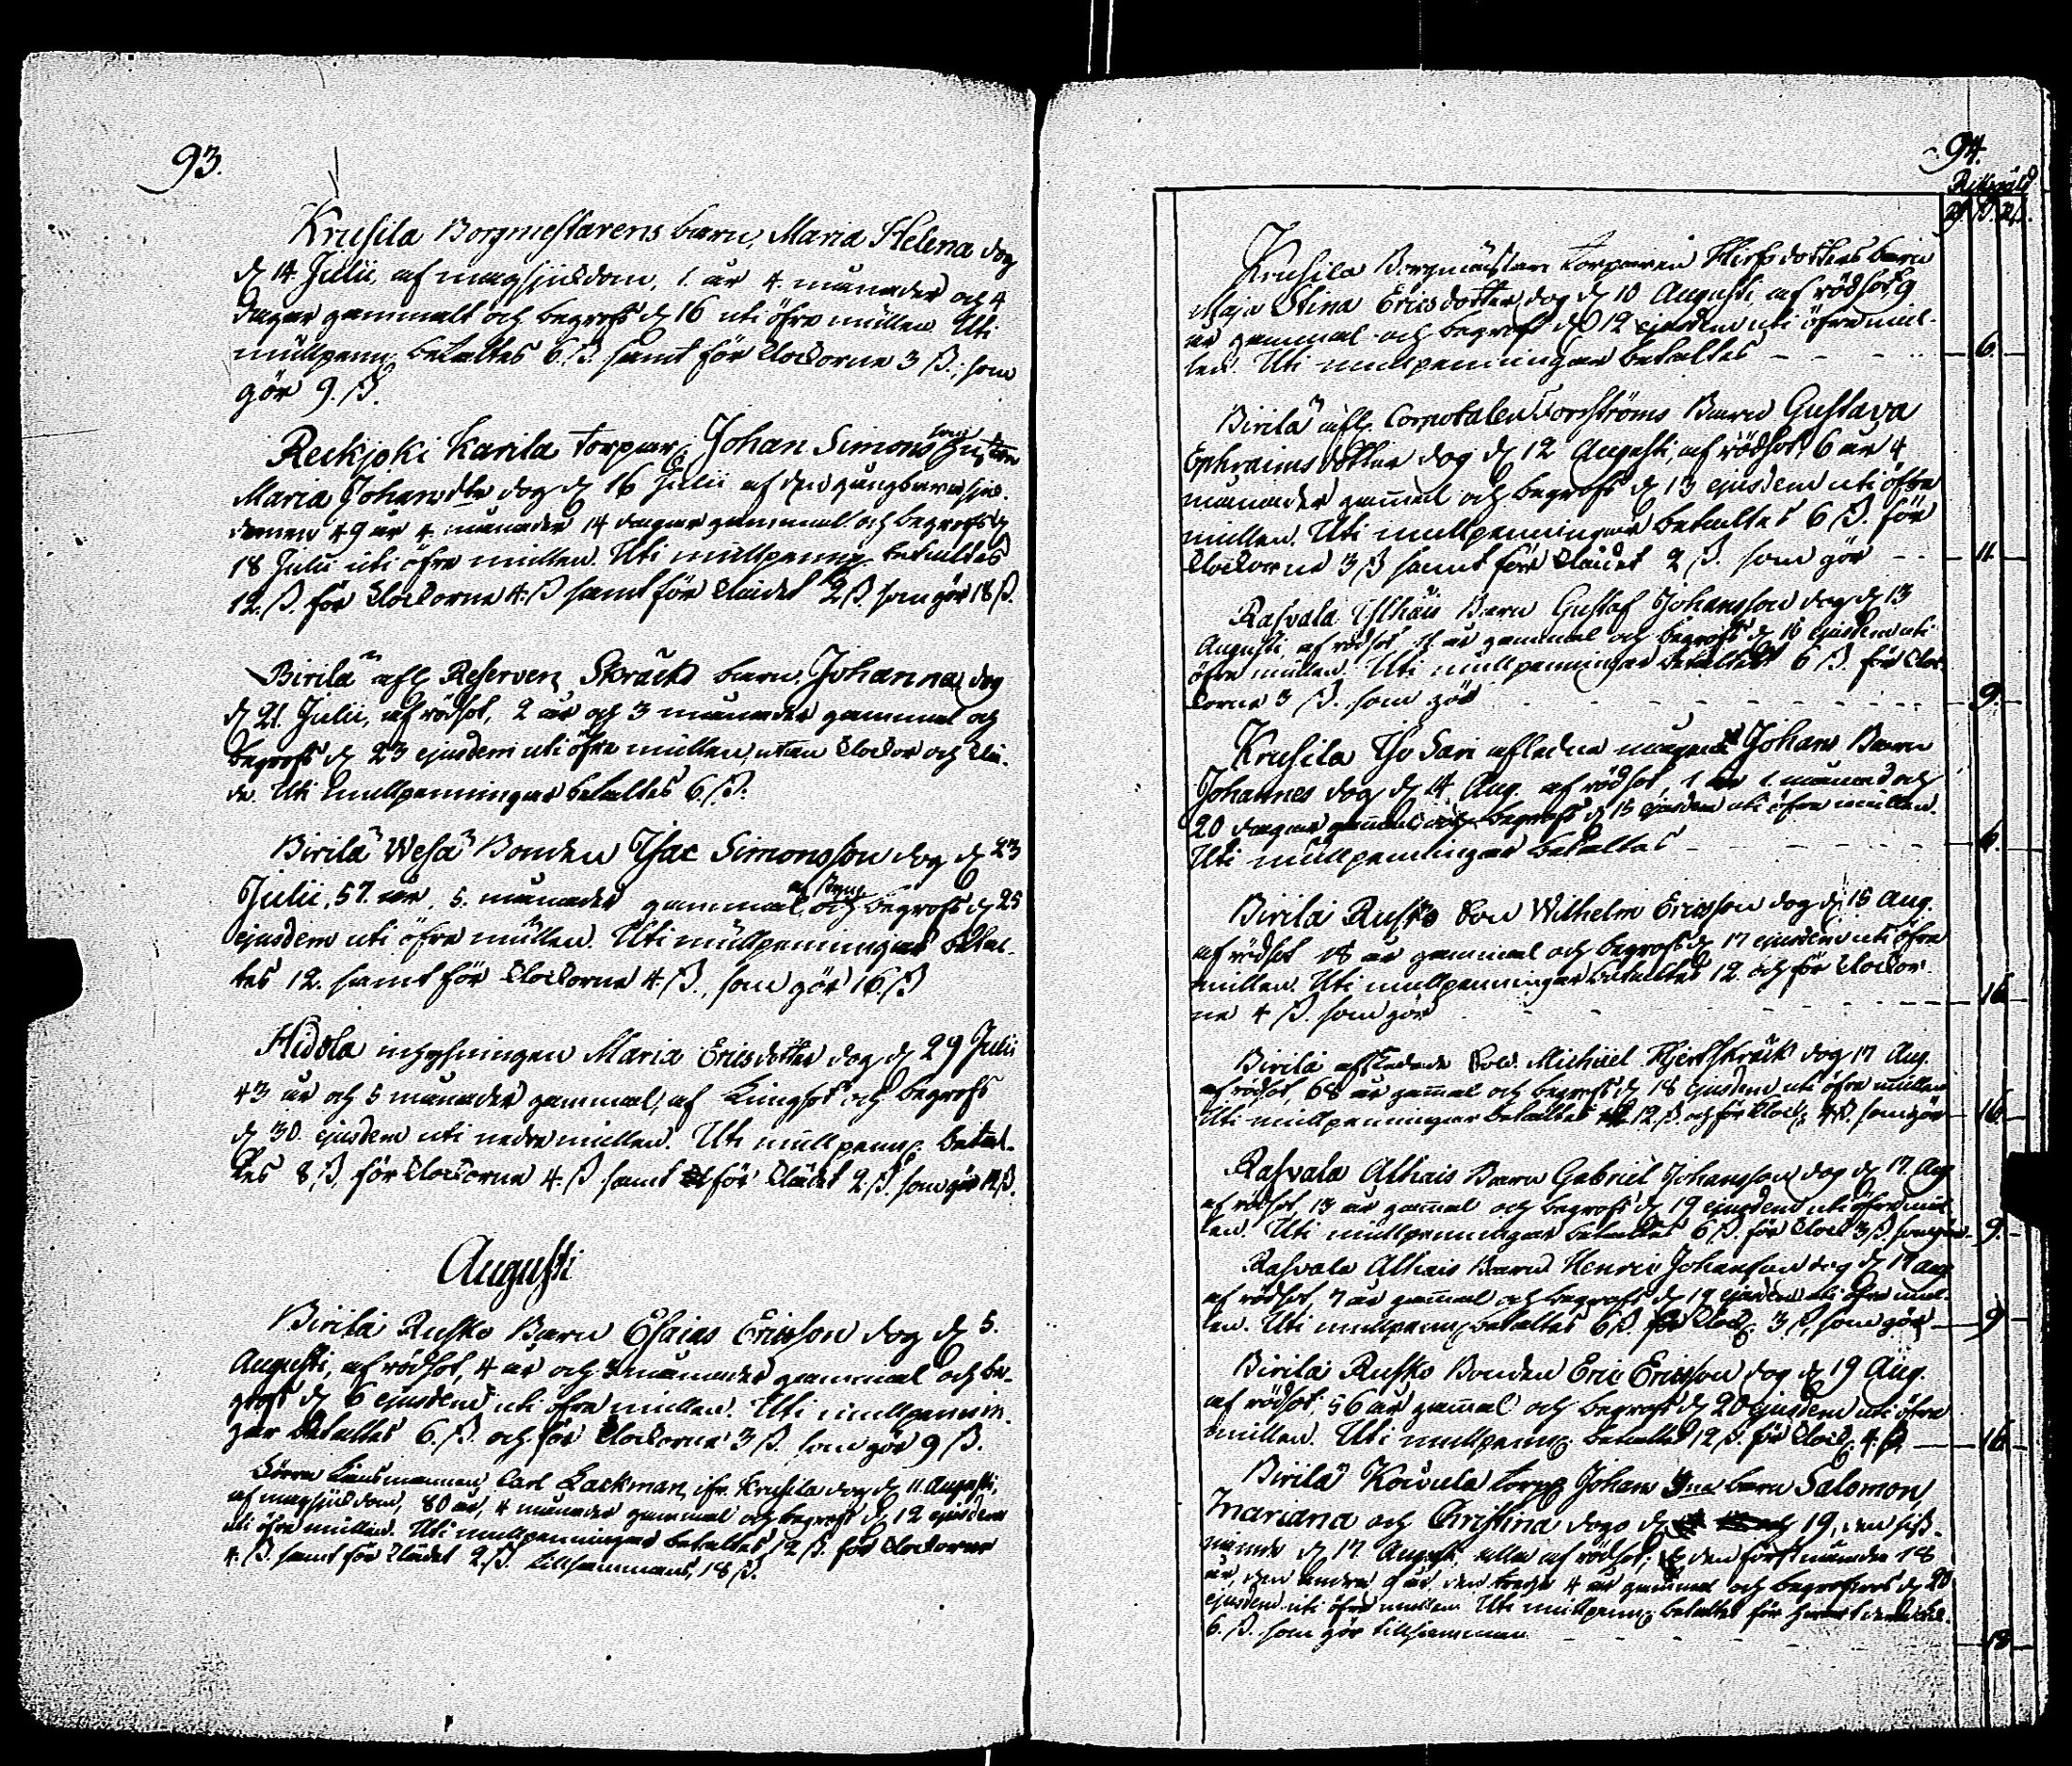 93.
Krusila Borgmestarens barn, Maria Helena dog
d. 14 Julii, af magsjukdom, 1. år 4. månader och 4
dagar gammalt och begrofs d. 16 uti öfre mullen. Uti
mullpenn. betaltes 6. ß. samt för Clockorne 3 ß.; som
gör 9. ß.
Reckjoki Karila torpar. Johan Simons sons
Maria Johansdtr dog d. 16 Julii af den gångbara sju-
domen 49 år 4. månader 14 dagar gammal och begrofs d.
18 Julii uti öfre mullen. Uti mullpenng betaltes
12. ß. för Clockorne 4. ß samt för Clädet 2 ß. som gör 18 ß.
Birilä afl. Reserven Skräcks barn. Johanna, dog
d. 21. Julii, af rödsot, 2 år och 3 månader gammal och
begrofs d. 23 ejusdem uti öfre mullen, utan Clockor och Clä-
de. Uti mullpenningar betaltes 6. ß.
Birilä Wesa Bonden Isac Simonsson dog d. 23
Julii, 57. år, 5. månader gammal, af styng och begrofs d. 25
ejusdem uti öfre mullen. Uti mullpenningar betal-
tes 12. samt för Clockorne 4. ß., som gör 16. ß
Hidola inhysningen Maria Ericsdotter dog d. 29 Julii
43 år och 5 månader gammal, af Lungsot och begrofs
d. 30. ejusdem uti nedre mullen. Uti mullpenng. betal-
tes 8, ß, för Clockorne 4. ß samt för Clädet 2 ß. som gör 14 ß.
Augusti
Birilä Rusko Barn Esaias Ericsson dog d. 5.
Augusti, af rödsot, 4 år och 3 månader gammal och be-
grofs d. 6 ejusdem uti öfre mullen. Uti mullpennin-
gar betaltes 6. ß. och för Clockorne 3 ß. som gör 9 ß.
Länsmannen Carl Lackman, ifr. Krusila dog d. 11. Augusti,
af magsjukdom, 80 år, 4 månader gammal och begrofs d. 12 ejusdem
uti öfre mullen. Uti mullpenningar betaltes 12 ß. för Clockorne
4. ß. samt för Clädet 2 ß. tillsammans, 18 ß.
94.
Krusila Borgmästare torparen Hirfsdotters barn
Maja Stina Ericsdotter dog d. 10 Augusti, af rödsot, 9
år gammal och begrofs d. 12 ejusdem uti öfre mul-
len. Uti mullpenningar betaltes - - - 6.
Birilä afl. Corpotalen Forsströms Barn Gustava
Ephraimsdotter dog d. 12 Augusti, af rödsot, 6 år 4
månader gammal och begrofs d. 13 ejusdem uti öfre
mullen. Uti mullpenningar betaltes 6 ß. för
Clockorne 3 ß samt för Clädet 2 ß. som gör - - 11.
Rasvala Barn Gustaf Johansson dog d. 13
Augusti, af rödsot, år gammal och begrofs d. 15 ejusdem uti
öfre mullen. Uti mullpenningar betaltes 6 ß. för Cloc-
korne 3 ß. som gör - - - 9.
Krusila Iso Sari afledna Johans Barn
Johannes dog d. 14 Aug. af rödsot, 1 år 1. månad och
20 dagar gammal och begrofs d. 15 ejusdem uti öfre mullen.
Uti mullpenningar betaltes - - - 6.
Birilä Rusko Son Wilhelm Ericsson dog d. 15 Aug.
af rödsot 18 år gammal och begrofs d. 17 ejusdem uti öfre
mullen. Uti mullpenningar betaltes 12. och för Clockor-
ne 4 ß. som gör - - - 16
Birilä aflednde Sold. Michael Hjertskräck dog 17 Aug.
af rödsot, 68 år gammal och begrofs d. 18 ejusdem uti öfre mullen
Uti mullpenningar betaltes 12. ß och för Clock. 4 ß. som gör 16.
Rasvala Alhais Barn Gabriel Johansson dog d. 17. Aug
af rödsot, 13 år gammal och begrofs d. 19 ejusdem uti öfre mul-
len. Uti mullpenningar betaltes 6 ß. för Clock 3 ß. som gör 9.
Rasvala Alhais Barn Henric Johansson dog d. 17 aug
af rödsot, 7 år gammal och begrofs d. 19 ejusdem uti öfre mul-
len. Uti mullpenng betaltes 6 ß. för Clock. 3 ß, som gör 9
Birilä Rusko Bonden Eric Ericsson dog d. 19 Aug.
af rödsot, 56 år gammal och begrofs d. 20 ejusdem uti öfre
mullen. Uti mullpenng. betaltes 12 ß. för Clock. 4. ß. 16
Birilä Koivula torp. Johans barn Salomon,
Mariana och Christina dogo d. 19, den sist-
nämde d. 17 Augusti, alla af rödsot; den förstnämnde 18
år, den andra 9 år, den tredje 4 år gammal och begrofvos d. 20
ejusdem uti öfre mullen. Uti mullpenng. betaltes för hvart
6. ß. som gör tillsamman - - - 18